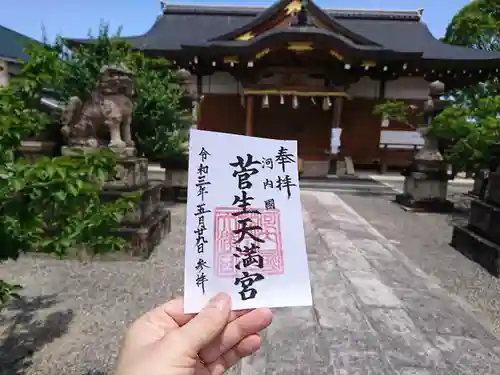 奉拝
河内國
菅生天満宮
令和三年五月廿九日参拝